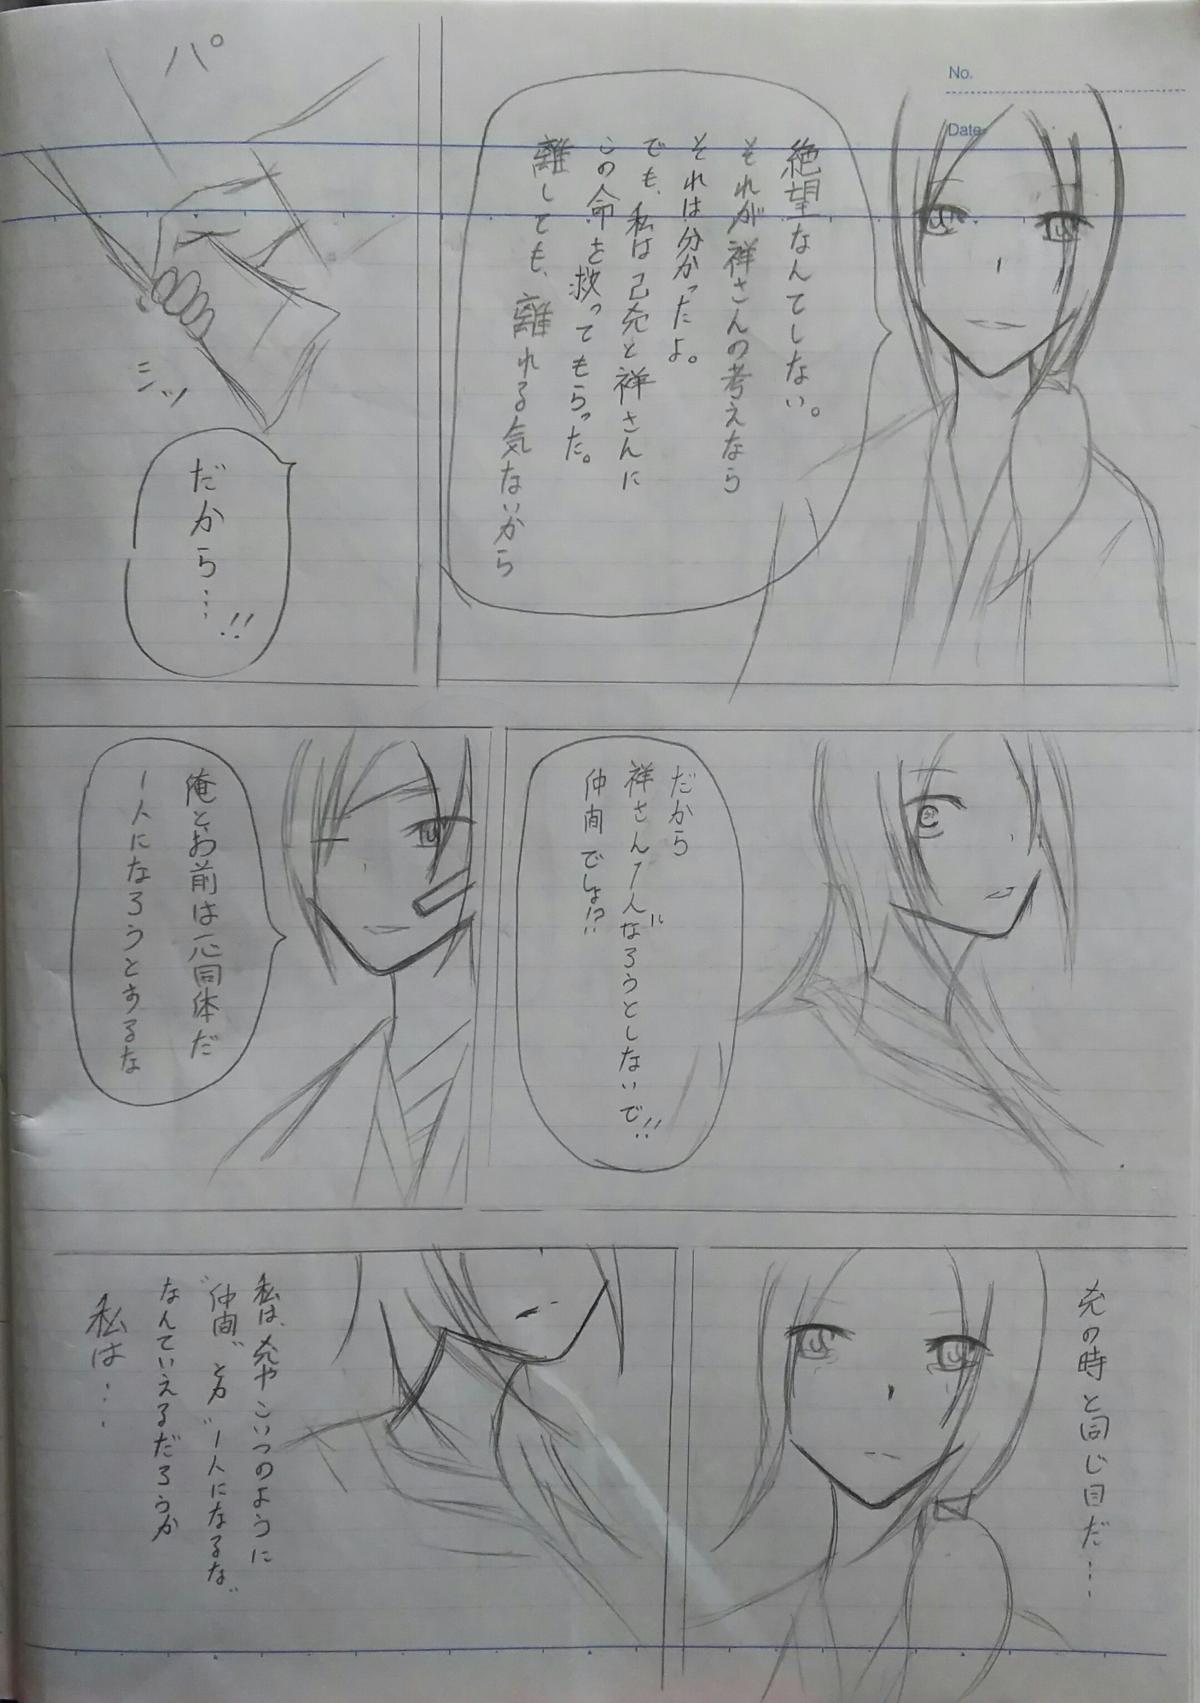 No.
Date
絶望なんてしない。
それが祥さんの考えなら
それは分かったよ。
でも、私は己尭と祥さんに
この命を救ってもらった。
離しても、離れる気ないから
パ
シッ
だから…!!
だから
祥さん1人になろうとしないで!!
仲間でしょ!?
俺とお前は一心同体だ
1人になろうとするな
尭の時と同じ目だ…
私は、尭やこいつのように
"仲間"とか"1人になるな"
なんていえるだろうか
私は…